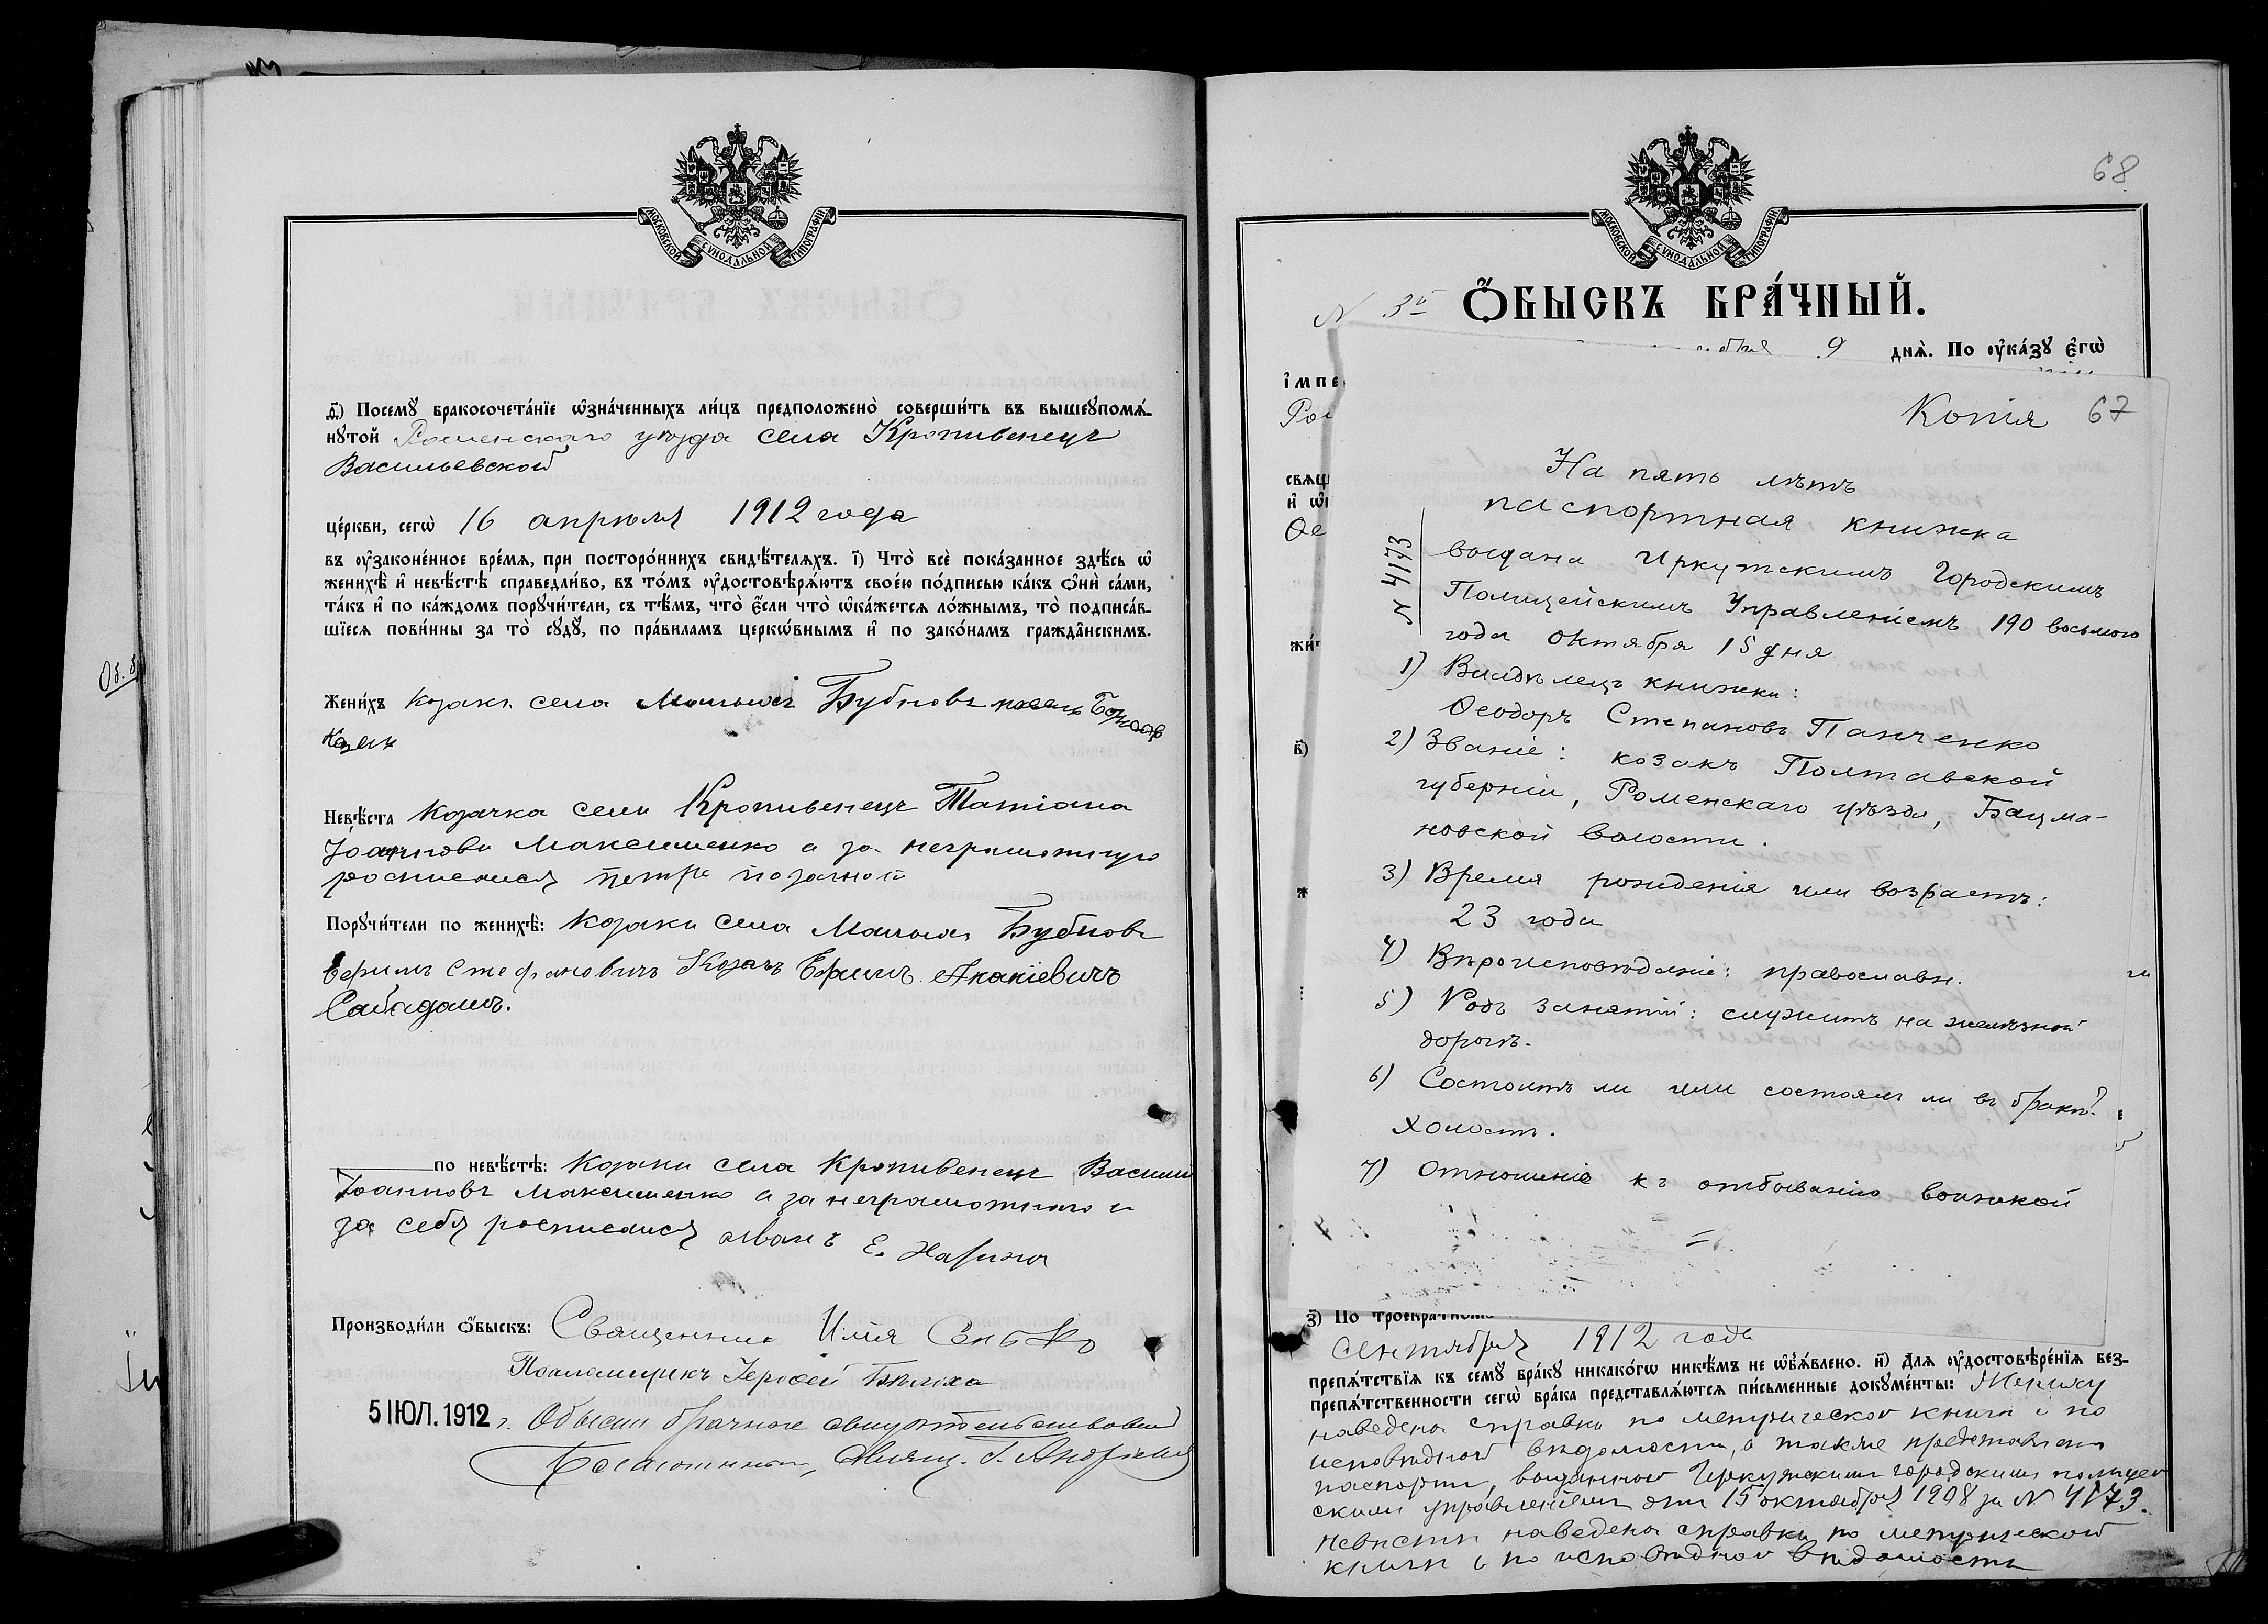 МОСКОВСКОЙ СѴНОДАЛЬНОЙ ТИПОГРАФІИ
д҃) Посемꙋ̀ бракосочета́нїе ѡ҆зна́ченныхъ ли́цъ предположено̀ соверши́ть въ вышеꙋпомѧ́-
нꙋтой Роменскаго уѣзда села Кропивенецъ
Васильевской
це́ркви, сегѡ̀ 16 апрѣля 1912 года
въ ᲂу҆законе́нное вре́мѧ, при посторо́ннихъ свидѣ́телѧхъ. і҃) Что̀ всѐ пока́занное здѣ́сь ѡ҆
женихѣ̀ и҆ невѣ́стѣ справедли́во, въ то́мъ ᲂу҆достовѣрѧ́ютъ свое́ю по́дписью ка́къ ѻ҆нѝ са́ми,
та́къ и҆ по ка́ждомъ порꙋчи́тели, съ тѣ́мъ, что̀ є҆́сли что̀ ѡ҆ка́жетсѧ ло́жнымъ, то̀ подписа́в-
шїесѧ пови́нны за то̀ сꙋдꙋ̀, по пра́виламъ церкѡ́внымъ и҆ по зако́намъ гражда̑нскимъ.
Жени́хъ козакъ села Малыхъ Бубновъ
Невѣ́ста Козачка села Кропивенецъ Татіана
Іоаннова Максименко а за неграмотную
росписался Петръ
Порꙋчи́тели по женихѣ̀: козаки села Малыхъ Бубновъ
Ефимъ Стефановичъ Козачъ Ефимъ Акакіевичъ
Сабадашъ.
по невѣ́стѣ: Козаки села Кропивенецъ Василій
Іоанновъ Максименко а за неграмотного и
за себя росписался Иванъ Е.
Производи́ли ѻ҆́быскъ: Священникъ Илія Сенько
Псаломщикъ Іеросей Бѣлиха
5 ІЮЛ. 1912 г. Обыски брачные свидѣтельствовалъ
Благочинный, Свящ. Г.
68
МОСКОВСКОЙ СѴНОДАЛЬНОЙ ТИПОГРАФІИ
N 35
Ѻ҆́БЫСКЪ БРА́ЧНЫЙ.
9 днѧ̀. По ᲂу҆ка́зꙋ є҆гѡ̀
і҆мпе
Ро
свѧщ
жи́т
в҃)
Копія 67
На пять лѣтъ
паспортная книжка
N 4173
выдана Иркутскимъ Городскимъ
Полицейскимъ Управленіемъ 190 восьмого
года октября 15 дня
1) Владѣлецъ книжки:
Ѳеодоръ Степановъ Панченко
2) Званіе: козакъ Полтавской
губерніи, Роменскаго уѣзда, Бацма-
новской волости.
3) Время рожденія или возрастъ:
23 года
4) Вѣроисповѣданіе: православн.
5) Родъ занятій: служитъ на желѣзной
дорогѣ.
6) Состоитъ ли или состоялъ ли въ бракѣ?
Холостъ.
7) Отношеніе къ отбыванію воинской
з҃) По троекра́тномꙋ
Сентября 1912 года
препѧ́тствїѧ къ семꙋ̀ бра́кꙋ никако́гѡ никѣ́мъ не ѡ҆б̾ѧ́влено. и҃) Длѧ ᲂу҆достовѣре́нїѧ без-
препѧ́тственности сегѡ̀ бра́ка представлѧ́ютсѧ пи́сьменные докꙋме́нты: Жениху
наведена справка по метрической книги и по
исповѣдной вѣдомости, а также представленъ
паспортъ, выданной Иркутскимъ городскимъ полицей
скимъ управленіемъ отъ 15 октября 1908 за N 4173.
Невѣсты наведена справка по метрической
книги и по исповѣдной вѣдомости